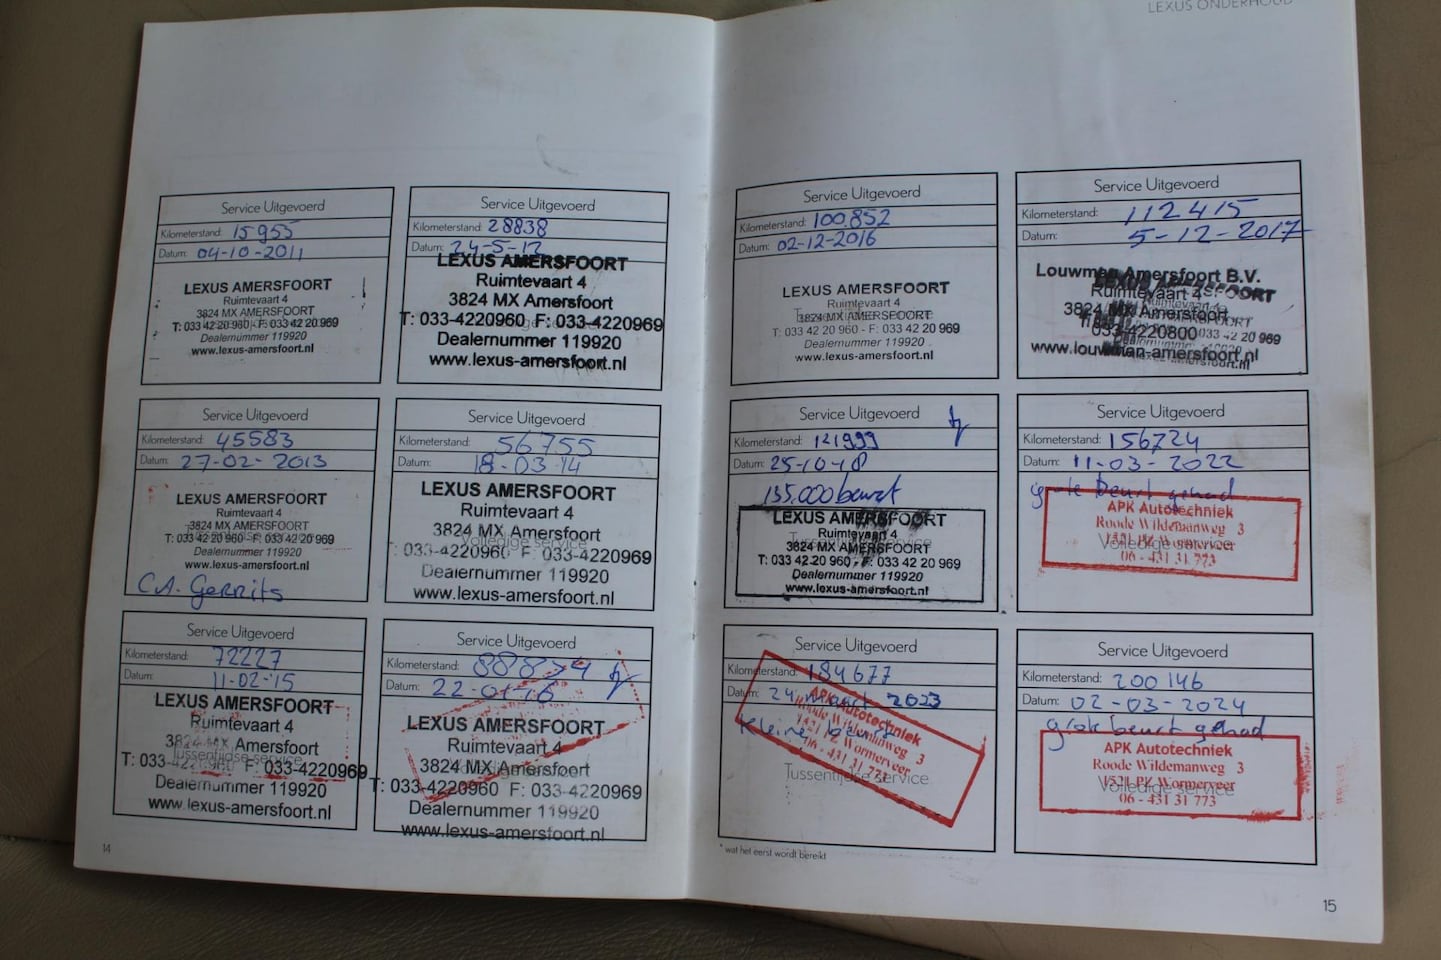 LEXUS ONDERHOUD
Service Uitgevoerd
Kilometerstand: 15955
Datum: 04-10-2011
LEXUS AMERSFOORT
Ruimtevaart 4
3824 MX AMERSFOORT
T: 033 42 20 960 - F: 033 42 20 969
Dealernummer 119920
www.lexus-amersfoort.nl
Service Uitgevoerd
Kilometerstand: 28838
Datum: 24-5-12
LEXUS AMERSFOORT
Ruimtevaart 4
3824 MX Amersfoort
T: 033-4220960 F: 033-4220969
Dealernummer 119920
www.lexus-amersfoort.nl
Service Uitgevoerd
Kilometerstand: 45583
Datum: 27-02-2013
LEXUS AMERSFOORT
Ruimtevaart 4
3824 MX AMERSFOORT
T: 033 42 20 960 F: 033 42 20 969
Dealernummer 119920
www.lexus-amersfoort.nl
C.A. Gerrits
Service Uitgevoerd
Kilometerstand: 56755
Datum: 18-03-14
LEXUS AMERSFOORT
Ruimtevaart 4
3824 MX Amersfoort
Volledige service
T: 033-4220960 F: 033-4220969
Dealernummer 119920
www.lexus-amersfoort.nl
Service Uitgevoerd
Kilometerstand: 72227
Datum: 11-02-'15
LEXUS AMERSFOORT
Ruimtevaart 4
3824 MX Amersfoort
Tussentijdse service
T: 033-4220960 F: 033-4220969
Dealernummer 119920
www.lexus-amersfoort.nl
Service Uitgevoerd
Kilometerstand:
Datum: 22-01-16
LEXUS AMERSFOORT
Ruimtevaart 4
3824 MX Amersfoort
T: 033-4220960 F: 033-4220969
Dealernummer 119920
www.lexus-amersfoort.nl
14
Service Uitgevoerd
Kilometerstand: 100.852
Datum: 02-12-2016
LEXUS AMERSFOORT
Ruimtevaart 4
3824 MX AMERSFOORT
T: 033 42 20 960 - F: 033 42 20 969
Dealernummer 119920
www.lexus-amersfoort.nl
Service Uitgevoerd
Kilometerstand: 112415
Datum: 5-12-2017
Louwman Amersfoort B.V.
LEXUS AMERSFOORT
Ruimtevaart 4
3824 MX Amersfoort
033-4220800
www.louwman-amersfoort.nl
Service Uitgevoerd
Kilometerstand: 121999
Datum: 25-10-18
135.000 beurt
LEXUS AMERSFOORT
Ruimtevaart 4
3824 MX AMERSFOORT
Tussentijdse service
T: 033 42 20 960 - F: 033 42 20 969
Dealernummer 119920
www.lexus-amersfoort.nl
Service Uitgevoerd
Kilometerstand: 156724
Datum: 11-03-2022
grote beurt gehad
APK Autotechniek
Roode Wildemanweg 3
1521 PZ Wormerveer
Volledige service
06 - 431 31 773
Service Uitgevoerd
Kilometerstand: 184677
Datum: 24 maart 2023
Kleine beurt
APK Autotechniek
Roode Wildemanweg 3
1521 PZ Wormerveer
06 - 431 31 773
Tussentijdse service
* wat het eerst wordt bereikt
Service Uitgevoerd
Kilometerstand: 200146
Datum: 02-03-2024
grote beurt gehad
APK Autotechniek
Roode Wildemanweg 3
1521 PZ Wormerveer
Volledige service
06 - 431 31 773
15